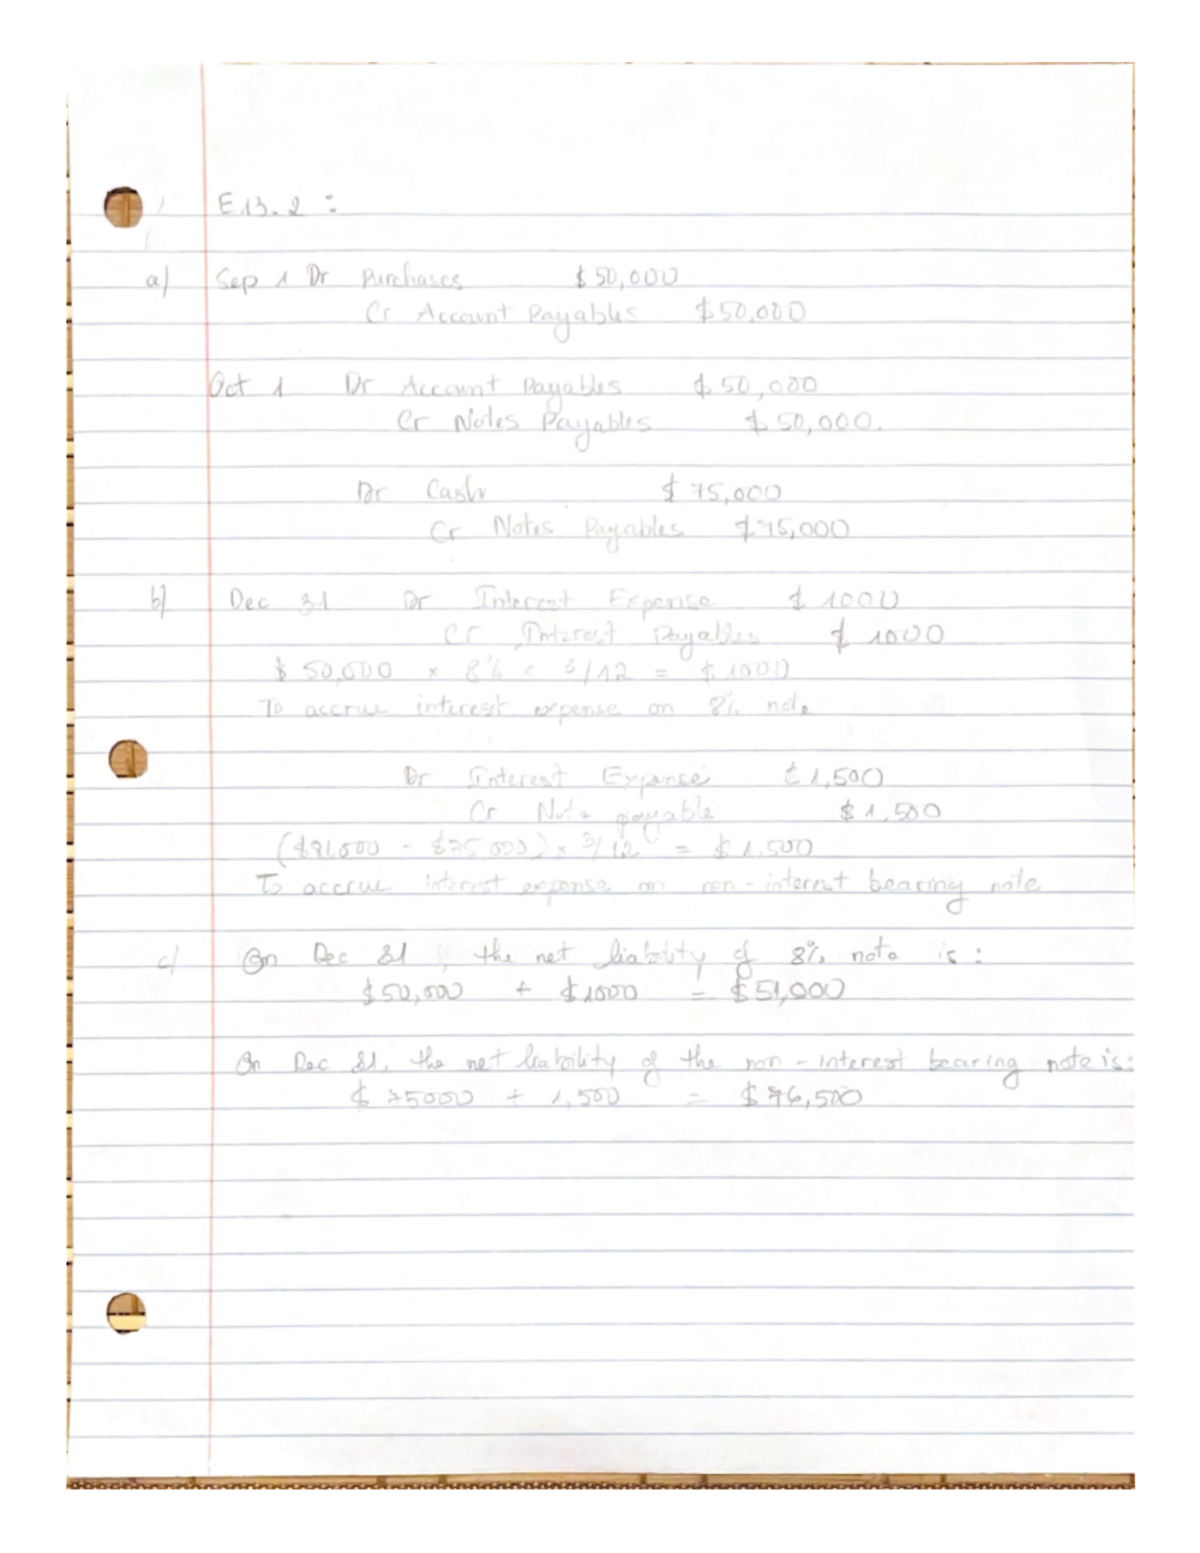 E13.2 :
a) Sep 1 Dr Purchases $50,000
Cr Account Payables $50,000
Oct 1 Dr Account Payables $50,000
Cr Notes Payables $50,000.
Dr Cash $75,000
Cr Notes Payables $75,000
b) Dec 31 Dr Interest Expense $1000
Cr Interest Payables $1000
$50,000 × 8% × 3/12 = $1000
To accrue interest expense on 8% note
Dr Interest Expense $1,500
Cr Note payable $1,500
($81,000 - $75,000) × 3/12 = $1,500
To accrue interest expense on non-interest bearing note
c) On Dec 31, the net liability of 8% note is:
$50,000 + $1000 = $51,000
On Dec 31, the net liability of the non-interest bearing note is:
$75000 + 1,500 = $76,500